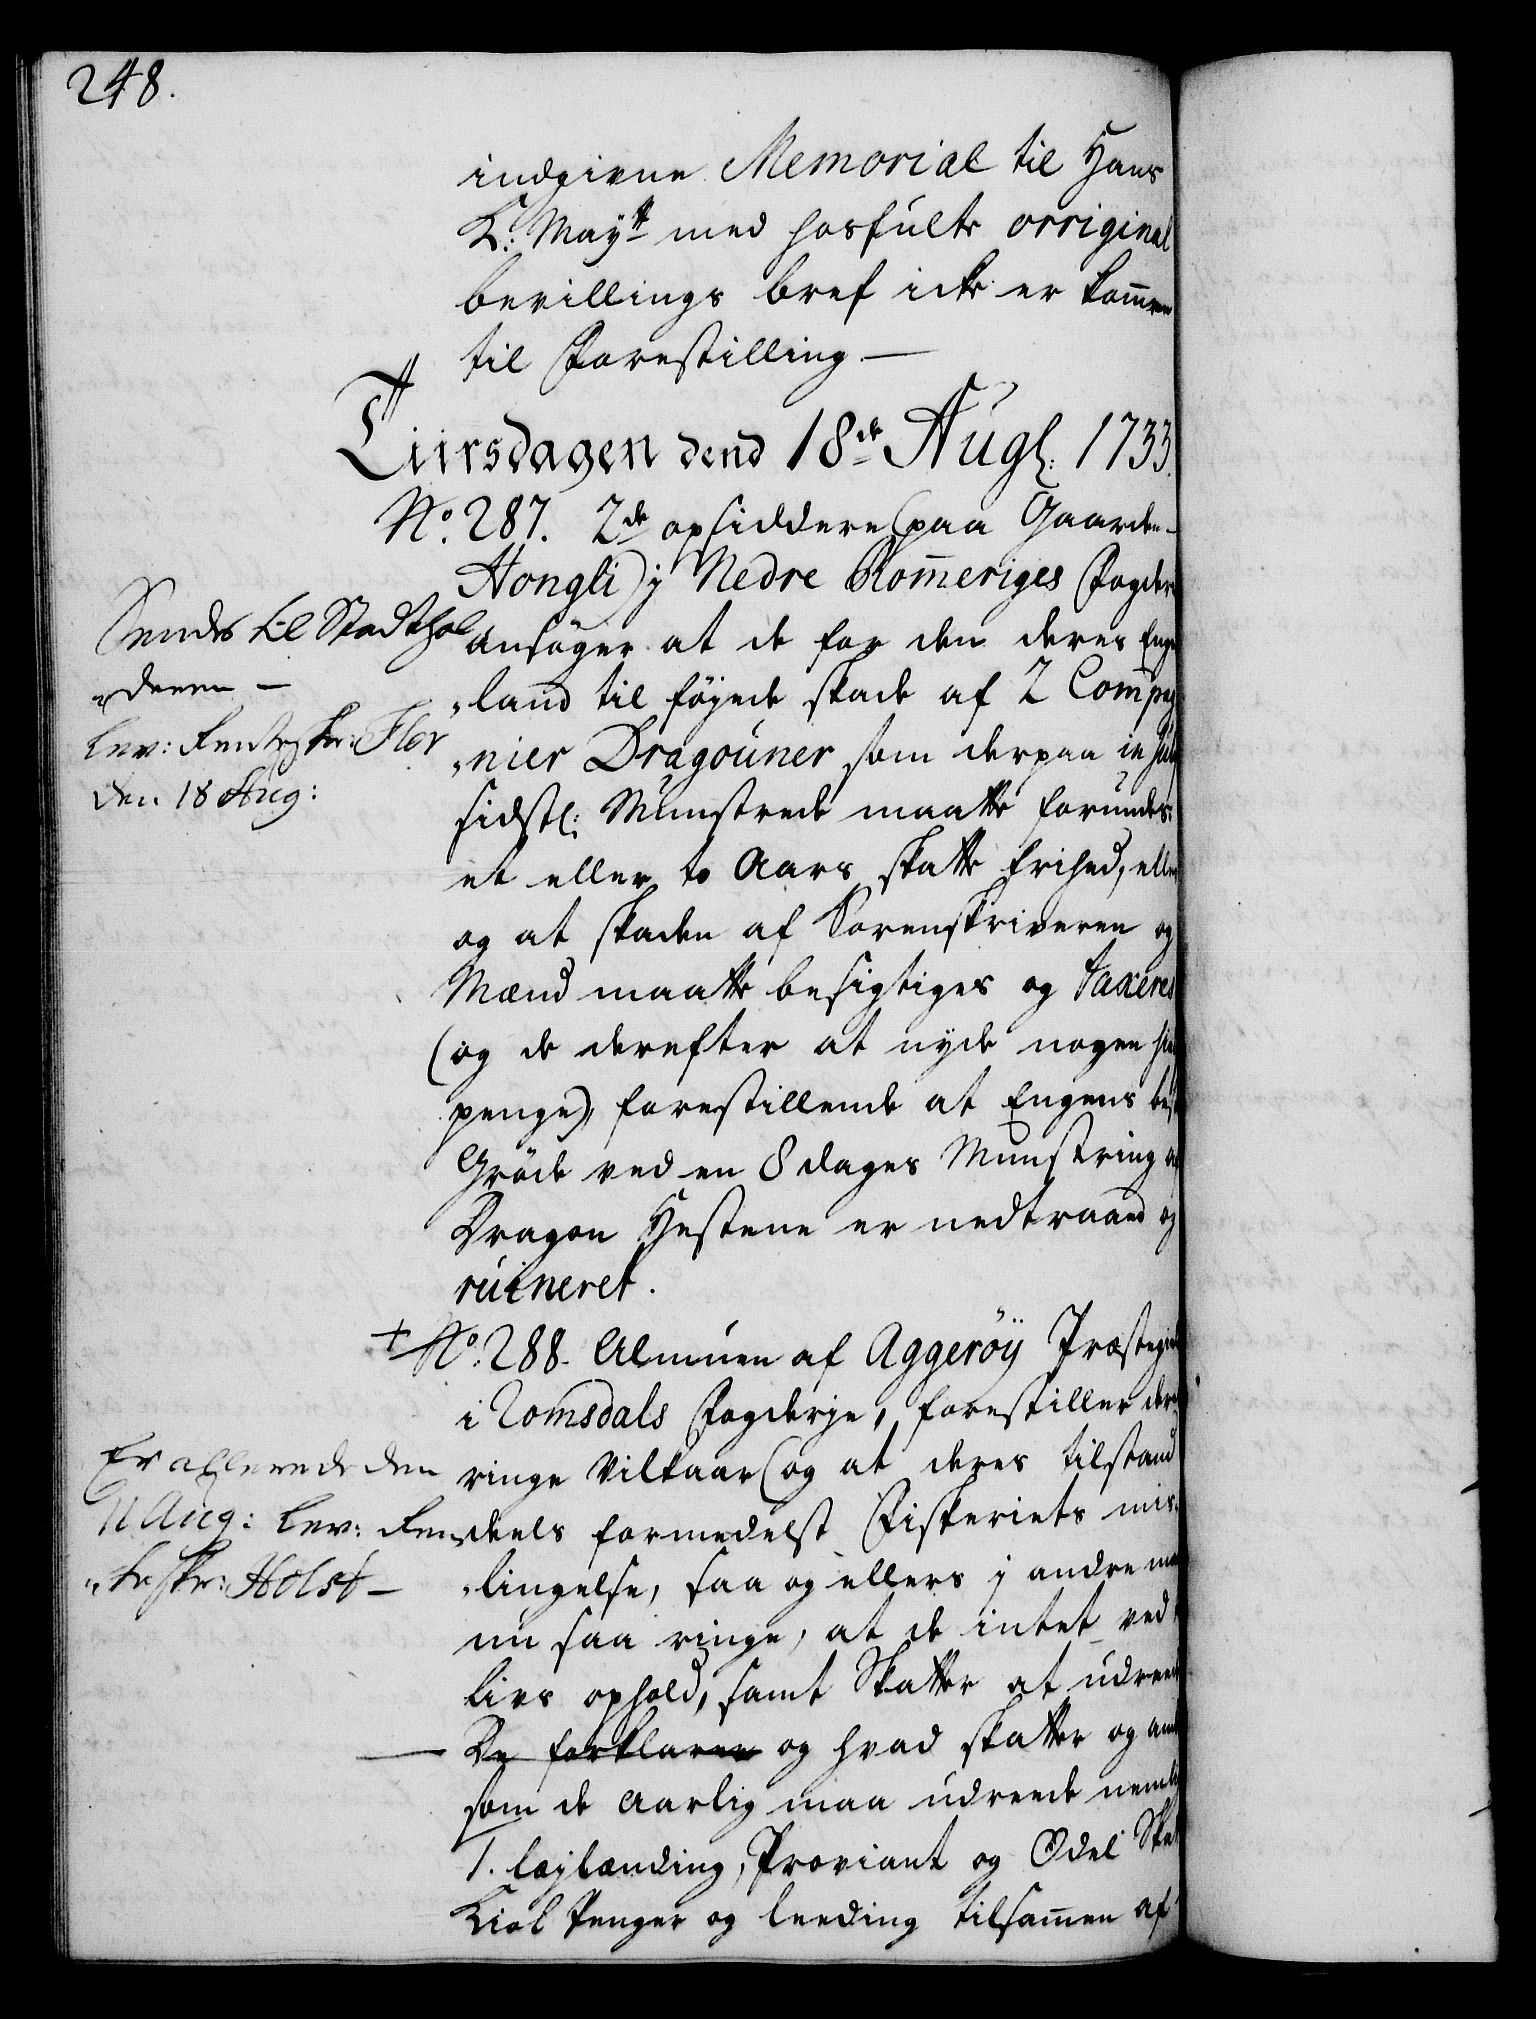 248.
indgivne Memorial til Hans
K: Mayᵗᵗ med hosfulte orriginal
bevillings bref icke er kom̄en
til Forestilling —
Tiirsdagen dend 18de Augl: 1733.
No. 287. 2de opsiddere paa Gaarden
Hongli j Nedre Rom̄eriges Fogderi
ansøger at de for den deres Eng-
„land til føyede skade af 2 Compag
„nier Dragouner som derpaa
sidstl: Munstrede maatte forundes
et eller to Aars skatte frihed, eller
og at skaden af Sorenskriveren og
Mænd maatte besigtiges og taxeres
(og de derefter at nyde nogen
penge), forestillende at Engens beste
Grøde ved en 8 dages Munstring af
Dragon Hestene er nedtraaed og
ruineret.
Sendes til Stadthol
„deren —
Lev: Renteskr: Flor
den 18 Aug:
+ No. 288. Almuen af Aggerøy Præstegield
i Romsdals Fogderje, forestiller deres
ringe Vilkaar og at deres tilstand
deels formedelst Fiskeriets mis-
„lingelse, saa og ellers j andre maader
nu saa ringe, at de intet ved
livs ophold, samt Skatter at udreede
— De forklarer og hvad skatter og andet
som de Aarlig maa udreede nemlig
1. Leylending, Proviant og Odel Skat
Kiol Penger og leeding tilsam̄en af
Er allerede den
11 Aug: Lev: Ren
„teskr: Holst —